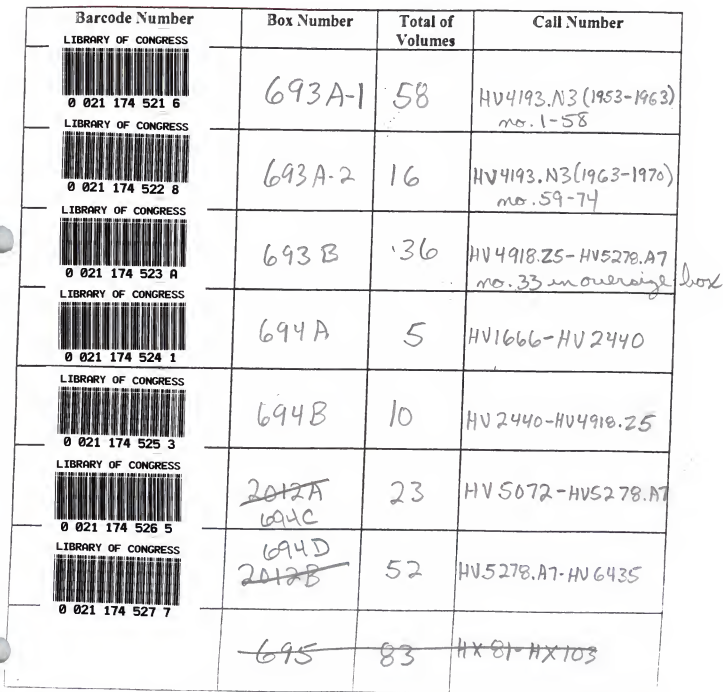 Barcode Number Box Number Total of Volumes Call Number
LIBRARY OF CONGRESS
0 021 174 521 6
693A-1 58 HV4193.N3 (1953-1963)
no. 1-58
LIBRARY OF CONGRESS
0 021 174 522 8
693A-2 16 HV4193.N3 (1963-1970)
no. 59-74
LIBRARY OF CONGRESS
0 021 174 523 A
693B 36 HV4918.Z5-HV5278.A7
no. 33 in oversize box
LIBRARY OF CONGRESS
0 021 174 524 1
694A 5 HV1666-HV2440
LIBRARY OF CONGRESS
0 021 174 525 3
694B 10 HV2440-HV4918.Z5
LIBRARY OF CONGRESS
0 021 174 526 5
2012A 23 HV5072-HV5278.A7
694C
LIBRARY OF CONGRESS
0 021 174 527 7
694D
2012B 52 HV5278.A7-HV6435
695 83 HX81-HX103